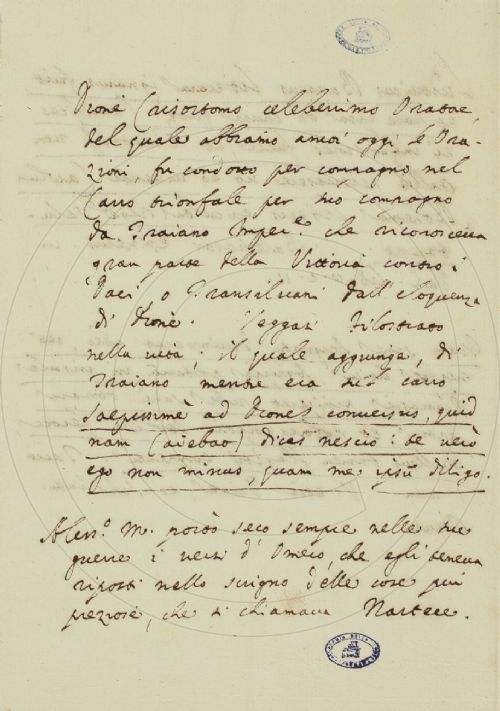 Dione Crisostomo celeberrimo Oratore,
del quale abbiamo ancor oggi le Ora-
zioni, fu condotto per compagno nel
Carro trionfale per suo compagno
da Traiano Imper.e che riconosceva
gran parte della Vittoria contro i
Daci, o Transilvani dall'eloquenza
di Dione. Veggasi Filostrato
nella vita; il quale aggiunge, di
Traiano mentre era sul carro
saepissimè ad Dionem conversus, quid
nam (aiebat) dicas nescio: te verò
ego non minus, quam me ipsum diligo.
Aless.o M. portò seco sempre nelle sue
guerre i versi d'Omero, che egli teneva
riposti nello scrigno delle cose più
preziose, che si chiamava Nartece.